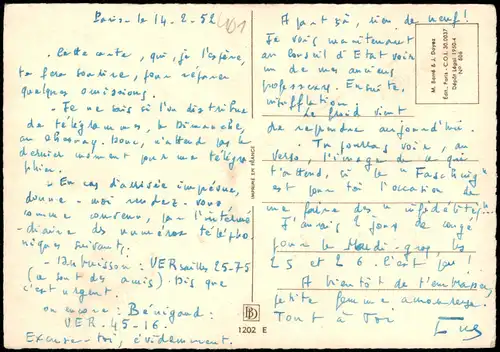 Paris - le 14-2-52
401
Cette carte, qui, je l'espère,
te fera sourire, pour réparer
quelques omissions.
- Je ne sais si l'on distribue
de télégrammes, le Dimanche,
au Donc, n'attend pas le
dernier moment pour me télégra-
phier.
- En cas d'arrivée imprévue,
donne-moi rendez-vous
comme convenu, par l'intermé-
-diaire des numéros télépho-
niques suivants:
- : VERsailles 25-75
(ce sont des amis). Dis que
c'est urgent.
ou encore: Bénigaud:
VER-45-16.
Excuse-toi, évidemment.
IMPRIMÉ EN FRANCE
1202 E
M. Barré & J. Dayez
Édit. Paris - C.O.L. 30.0037
Dépôt légal 1950-4
A part çà, rien de neuf!
Je vais maintenant
au Conseil d'Etat voir
un de mes anciens
professeurs. Ensuite,
Le froid vient
de reprendre aujourd'hui.
Tu pourras voir, au
verso, l'image de ce qui
t'attend, si le "Fasching"
est pour toi l'occasion de
me faire des "infidélités".
J'aurai 2 jours de congé
pour le Mardi-gras, les
25 et 26. C'est peu!
A bientôt de t'embrasser,
petite femme amoureuse.
Tout à toi